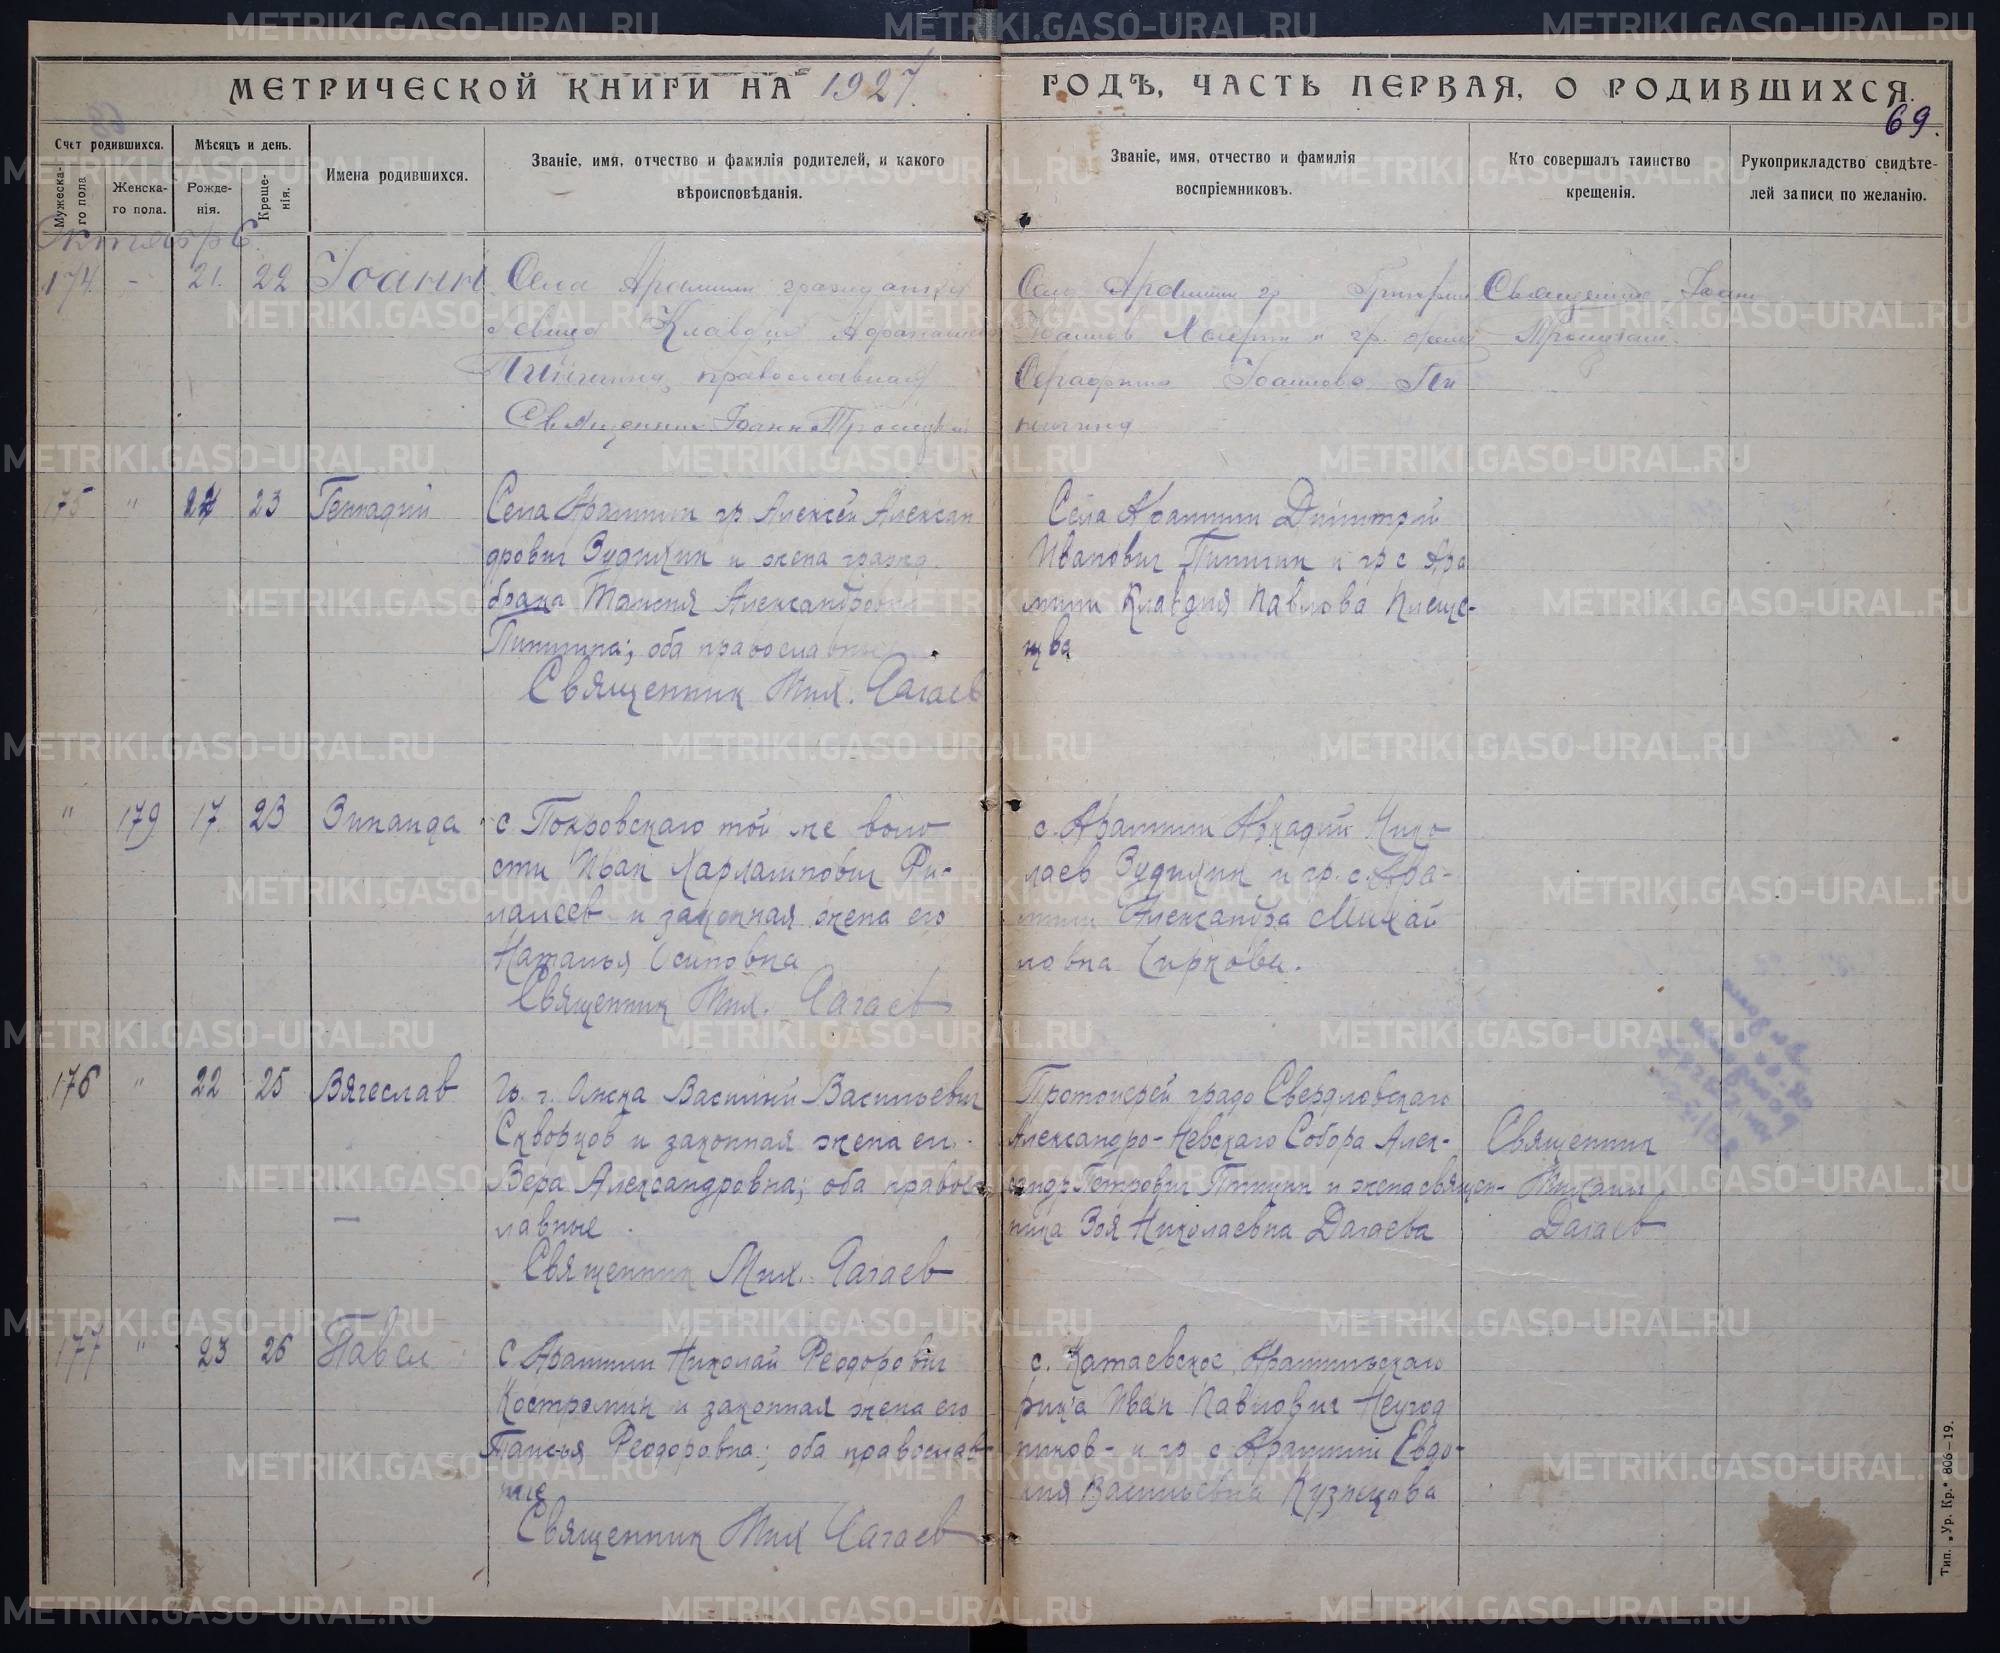 МЕТРИЧЕСКОЙ КНИГИ НА 1927. ГОДЪ, ЧАСТЬ ПЕРВАЯ, О РОДИВШИХСЯ.
69.
Счет родившихся.
Мужеска-го пола
Женска-го пола.
Мѣсяцъ и день.
Рожде-нія.
Креще-нія.
Имена родившихся.
Званіе, имя, отчество и фамилія родителей, и какого
вѣроисповѣданія.
Званіе, имя, отчество и фамилія
воспріемниковъ.
Кто совершалъ таинство
крещенія.
Рукоприкладство свидѣте-
лей записи по желанію.
Октябрь.
174 - 21. 22 Іоанн
Села Арамили гражданка
девица Клавдия
православная
Священник Іоанн Троицкий
Село Арамили гр
Іоаннов и гр.
Серафима Іоаннова
Священник Іоанн
Троицкий.
175 " 23 Геннадий
Села Арамили гр Алексей Алексан
дрович Зудихин и жена гражд.
брака Таисия Александровна
оба православные
Священник Мих. Дагаев
Села Арамили Димитрий
Иванович и гр с Ара
мили Клавдия Павлова
" 179 17. 23 Зинаида
с Покровского той же воло
сти Иван Харлампович
и законная жена его
Наталья Осиповна
Священник Мих. Дагаев
с. Арамили Аркадий Нико
лаев Зудихин и гр. с. Ара-
мили Александра Михай
ловна Чиркова.
176 " 22 25 Вячеслав
Гр. г. Омска Василий Васильевич
Скворцов и законная жена его
Вера Александровна; оба правос
лавные.
Священник Мих. Дагаев
Протоиерей града Свердловского
Александро-Невского Собора Алек-
сандр Петрович и жена священ-
ника Зоя Николаевна Дагаева
Священник
Михаил
Дагаев
177 " 23 26 Павел
с Арамили Николай Феодорович
Костромин и законная жена его
Таисья Феодоровна; оба православ-
ные
Священник Мих Дагаев
с. Арамильского
Иван Павлович Неугод
ников и гр с Арамили Евдо-
Васильевна Кузнецова
Тип. „Ур. Кр.“ 806—19.
METRIKI.GASO-URAL.RU